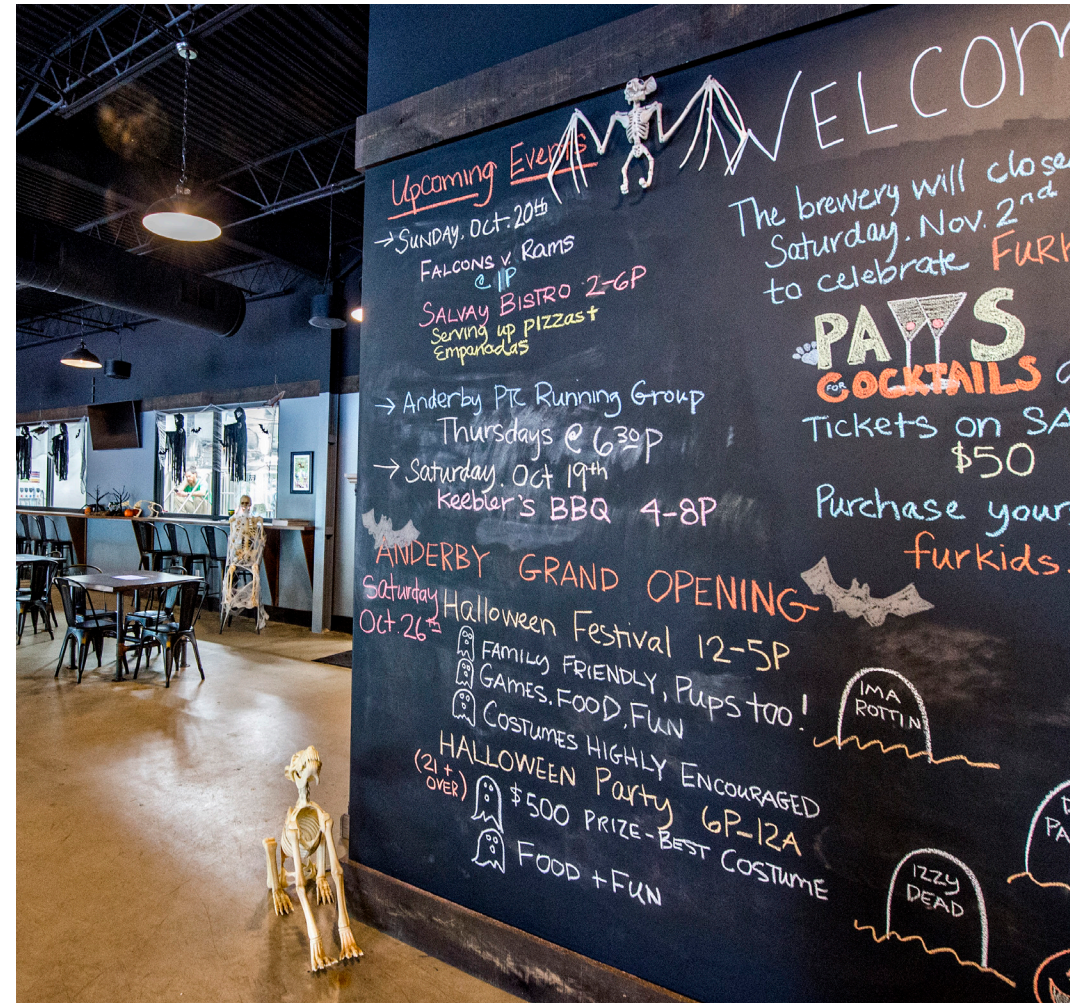 Upcoming Events
→ SUNDAY, OCT. 20th
FALCONS v. Rams
@ 1P
SALVAY BISTRO 2-6P
Serving up pizzas +
Empanadas
→ Anderby PTC Running Group
Thursdays @ 6 30 P
→ Saturday, Oct 19th
Keebler's BBQ 4-8P
ANDERBY GRAND OPENING
Saturday
Oct. 26th
Halloween Festival 12-5P
FAMILY FRIENDLY, Pups too!
GAMES, FOOD, FUN
COSTUMES HIGHLY ENCOURAGED
HALLOWEEN Party 6P-12A
(21 +
OVER)
$500 PRIZE-BEST COSTUME
FOOD + FUN
WELCOM
The brewery will close
Saturday. Nov. 2nd
to celebrate FURK
PAWS
FOR COCKTAILS
Tickets on SA
$50
Purchase your
furkids.
IMA
ROTTIN
PA
IZZY
DEAD